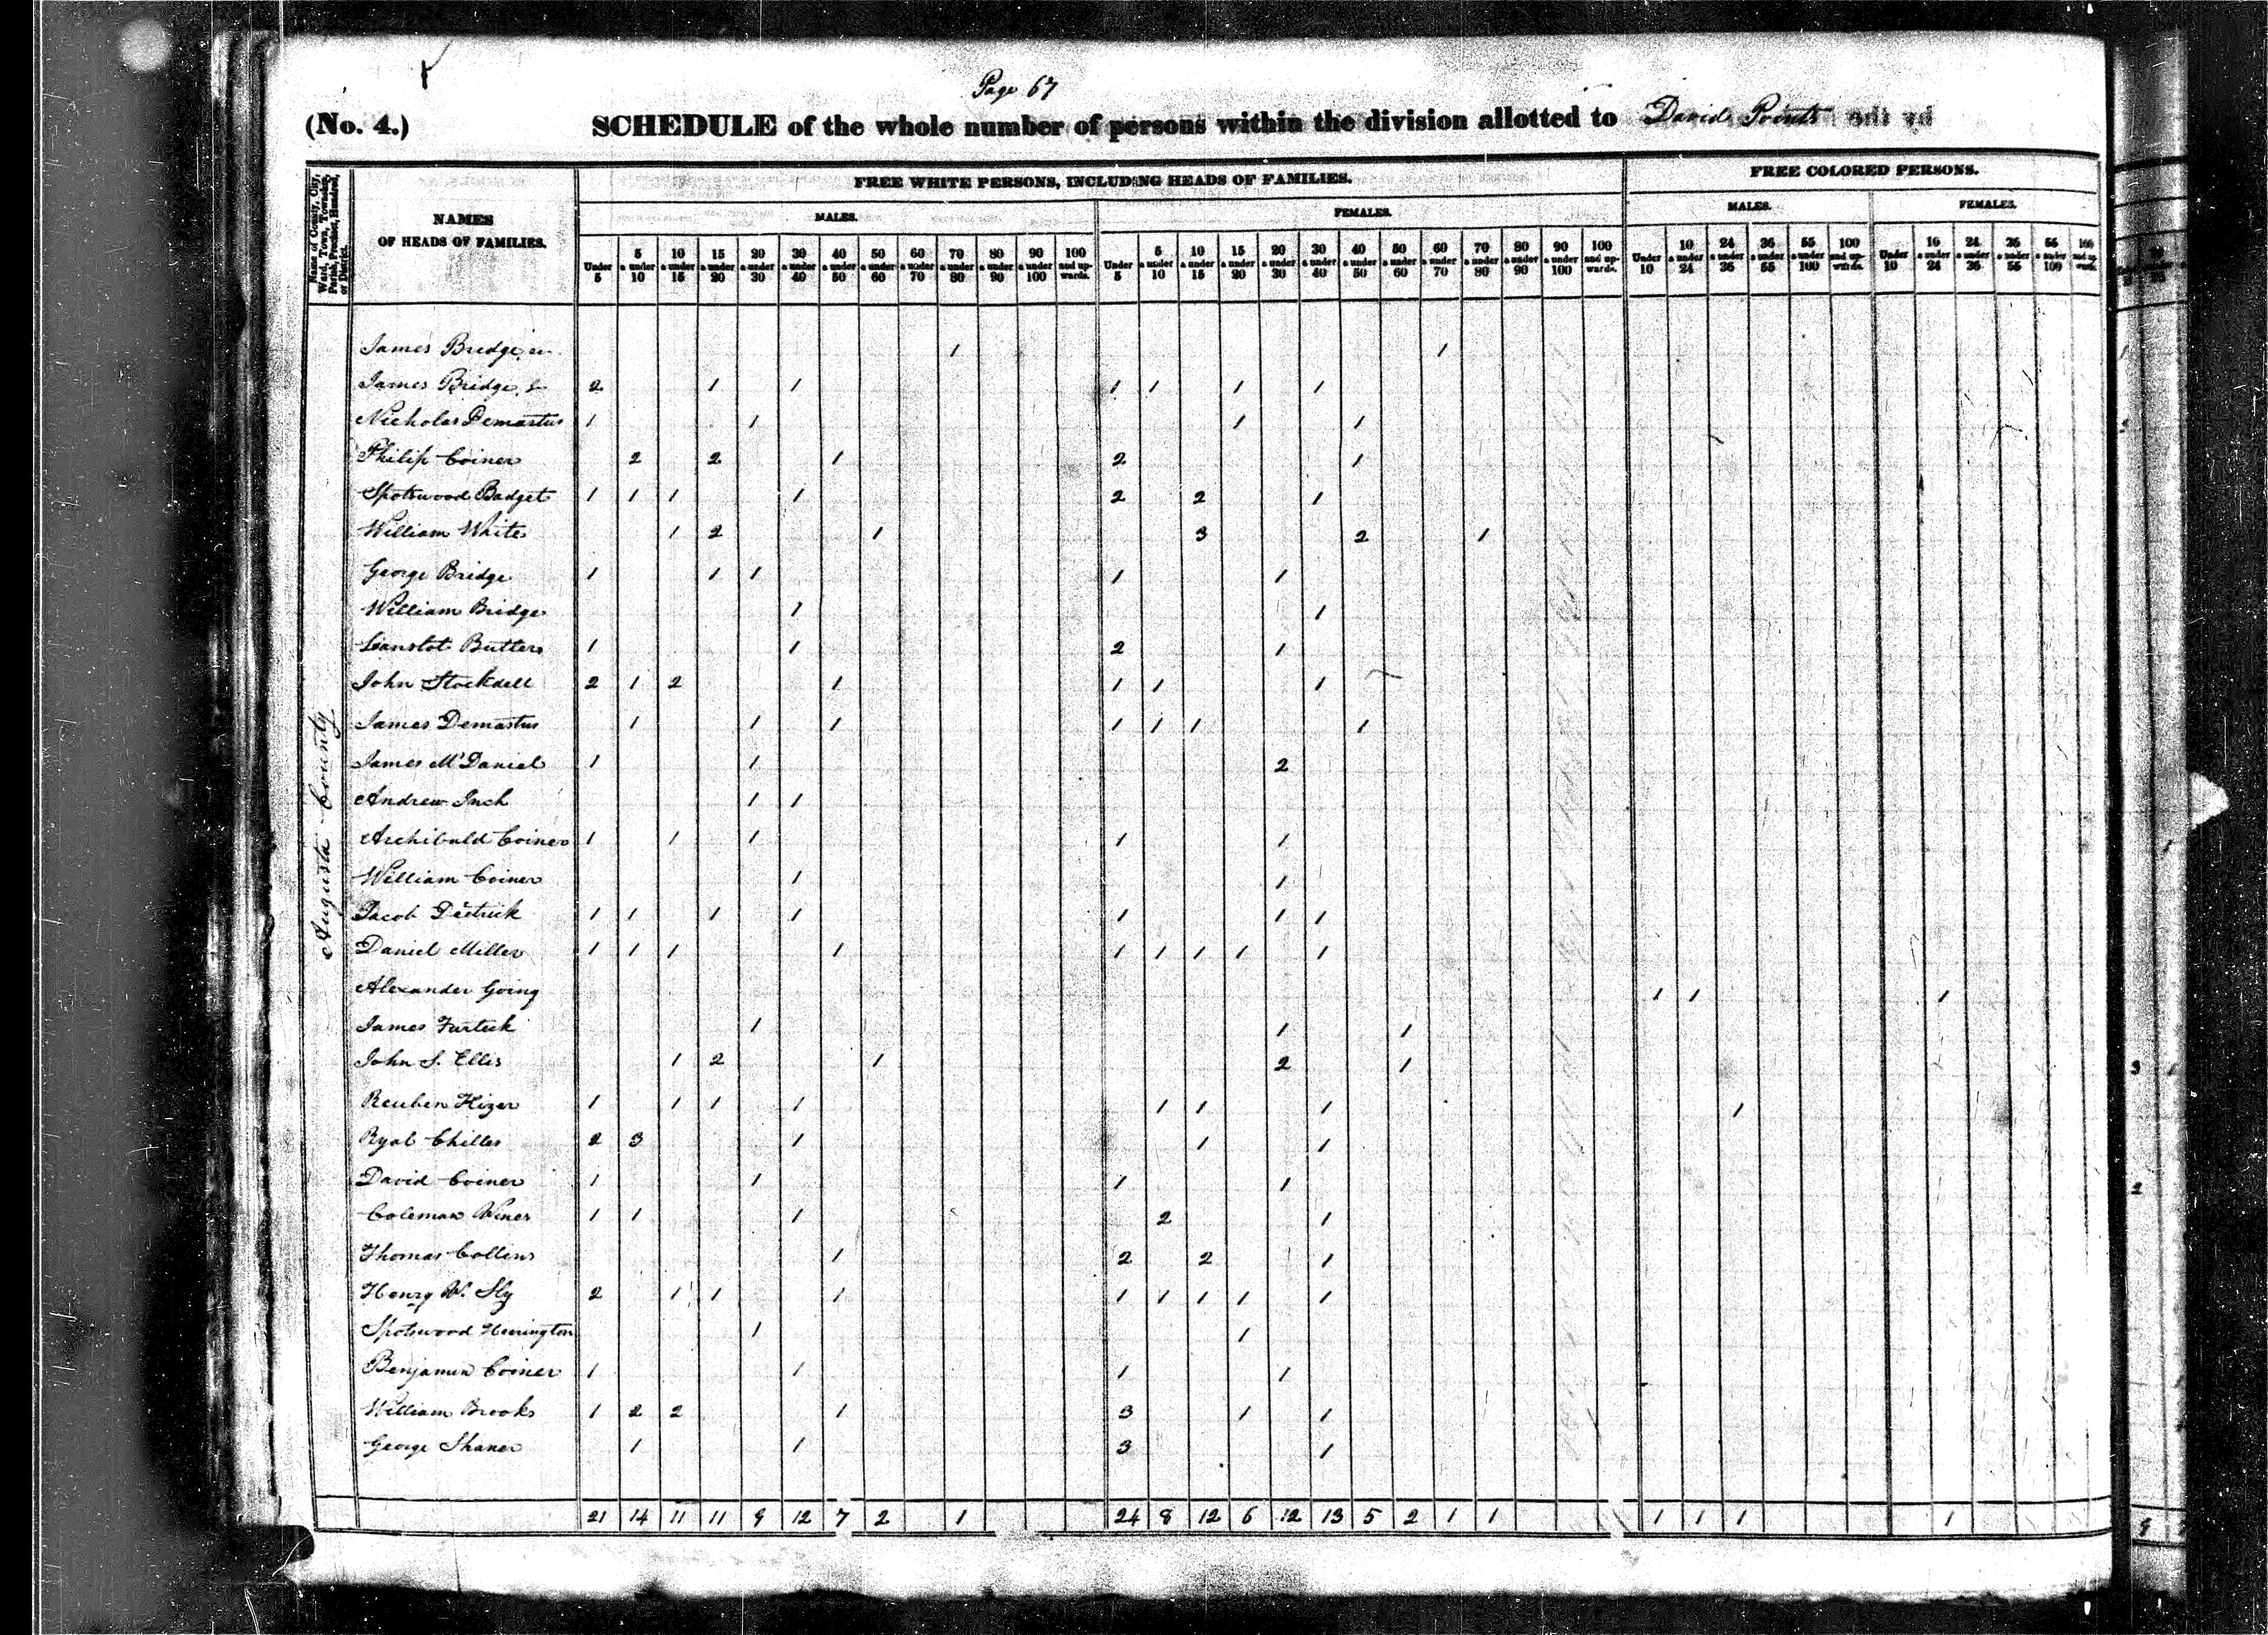 Page 67
(No. 4.) SCHEDULE of the whole number of persons within the division allotted to David Points by the
Name of County, City, Ward, Town, Township, Parish, Precinct, Hundred, or District.
NAMES OF HEADS OF FAMILIES.
FREE WHITE PERSONS, INCLUDING HEADS OF FAMILIES.
FREE COLORED PERSONS.
MALES. FEMALES. MALES. FEMALES.
Under 5 5 & under 10 10 & under 15 15 & under 20 20 & under 30 30 & under 40 40 & under 50 50 & under 60 60 & under 70 70 & under 80 80 & under 90 90 & under 100 100 and upwards. Under 5 5 & under 10 10 & under 15 15 & under 20 20 & under 30 30 & under 40 40 & under 50 50 & under 60 60 & under 70 70 & under 80 80 & under 90 90 & under 100 100 and upwards. Under 10 10 & under 24 24 & under 36 36 & under 55 55 & under 100 100 and upwards. Under 10 10 & under 24 24 & under 36 36 & under 55 55 & under 100 100 and upwards.
Augusta County
James Bridge 1 1
James Bridge, Jr 2 1 1 1 1 1 1
Nicholas Demastus 1 1 1 1
Philip Coiner 2 2 1 2 1
Spotswood Badget 1 1 1 1 2 2 1
William White 1 2 1 3 2 1
George Bridge 1 1 1 1 1
William Bridge 1 1
Lanslot Butlers 1 1 2 1
John Stockdell 2 1 2 1 1 1 1
James Demastus 1 1 1 1 1 1 1
James McDaniel 1 1 2
Andrew Inch 1 1
Archibald Coiner 1 1 1 1 1
William Coiner 1 1
Jacob Dietrick 1 1 1 1 1 1 1
Daniel Miller 1 1 1 1 1 1 1 1 1
Alexander Going 1 1 1
James Furtick 1 1 1
John S. Ellis 1 2 1 2 1
Reuben Hizer 1 1 1 1 1 1 1 1
Ryal Chiller 2 3 1 1 1
David Coiner 1 1 1 1
Coleman Winer 1 1 1 2 1
Thomas Collins 1 2 2 1
Henry W. Sly 2 1 1 1 1 1 1 1 1
Spotswood Herrington 1 1
Benjamin Coiner 1 1 1 1
William Brooks 1 2 2 1 3 1 1
George Shaner 1 1 3 1
21 14 11 11 9 12 7 2 1 24 8 12 6 12 13 5 2 1 1 1 1 1 1